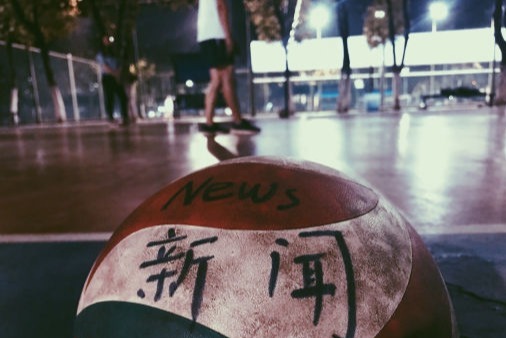 News
新闻